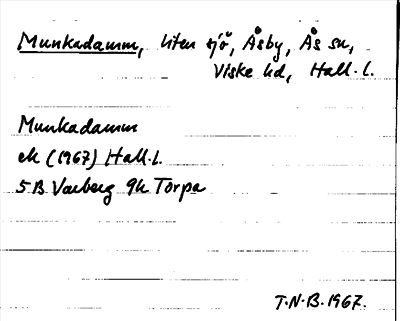 Munkadamm, liten sjö, Åsby, Ås sn,
Viske hd, Hall. l.
Munkadamm
ek (1967) Hall. l.
5B Varberg 9h Torpa
T.N.B. 1967.